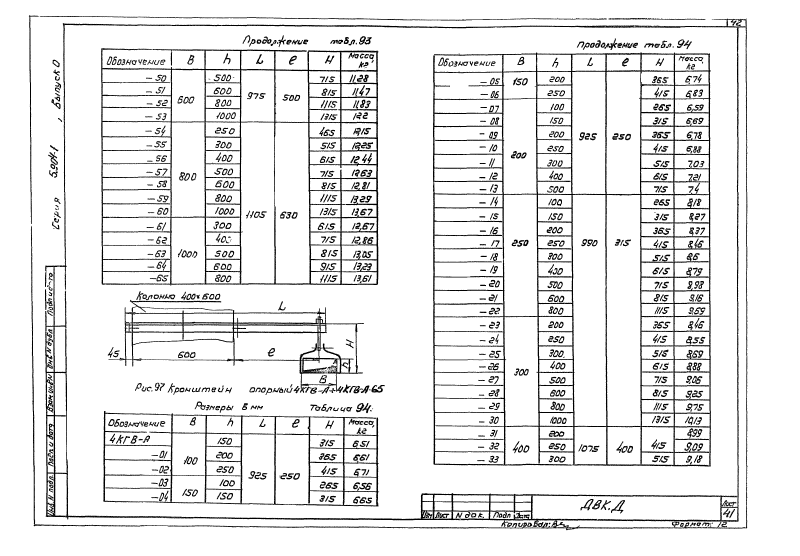 42
Продолжение табл. 93
Обозначение B h L e H Масса, кг
-50 600 500 975 500 715 11,28
-51 600 815 11,47
-52 800 1115 11,83
-53 1000 1315 12,2
-54 800 250 1105 630 465 12,15
-55 300 515 12,25
-56 400 615 12,44
-57 500 715 12,63
-58 600 815 12,81
-59 800 1115 13,29
-60 1000 1315 13,67
-61 1000 300 615 12,67
-62 400 715 12,86
-63 500 815 13,05
-64 600 915 13,23
-65 800 1115 13,61
Колонна 400×600
L
H
h
45 600 e
B
Рис. 97 Кронштейн опорный 4КГВ-А÷4КГВ-А-65
Размеры в мм Таблица 94.
Обозначение B h L e H Масса, кг
4КГВ-А 100 150 925 250 315 6,51
-01 200 365 6,61
-02 250 415 6,71
-03 150 100 265 6,56
-04 150 315 6,65
Продолжение табл. 94
Обозначение B h L e H Масса, кг
-05 150 200 925 250 365 6,74
-06 250 415 6,83
-07 200 100 265 6,59
-08 150 315 6,69
-09 200 365 6,78
-10 250 415 6,88
-11 300 515 7,03
-12 400 615 7,21
-13 500 715 7,4
-14 250 100 990 315 265 8,18
-15 150 315 8,27
-16 200 365 8,37
-17 250 415 8,46
-18 300 515 8,6
-19 400 615 8,79
-20 500 715 8,98
-21 600 815 9,16
-22 800 1115 9,69
-23 300 200 365 8,46
-24 250 415 8,55
-25 300 515 8,69
-26 400 615 8,88
-27 500 715 9,06
-28 600 815 9,25
-29 800 1115 9,75
-30 1000 1315 10,13
-31 400 200 1075 400 8,99
-32 250 415 9,09
-33 300 515 9,18
Серия 5.904-1, Выпуск 0
Инв. N подл. Подп. и дата Взам. инв. N Инв. N дубл. Подп. и дата
Изм Лист N док. Подп. Дата
ДВК.Д
Лист
41
Копировал:
Формат: 12